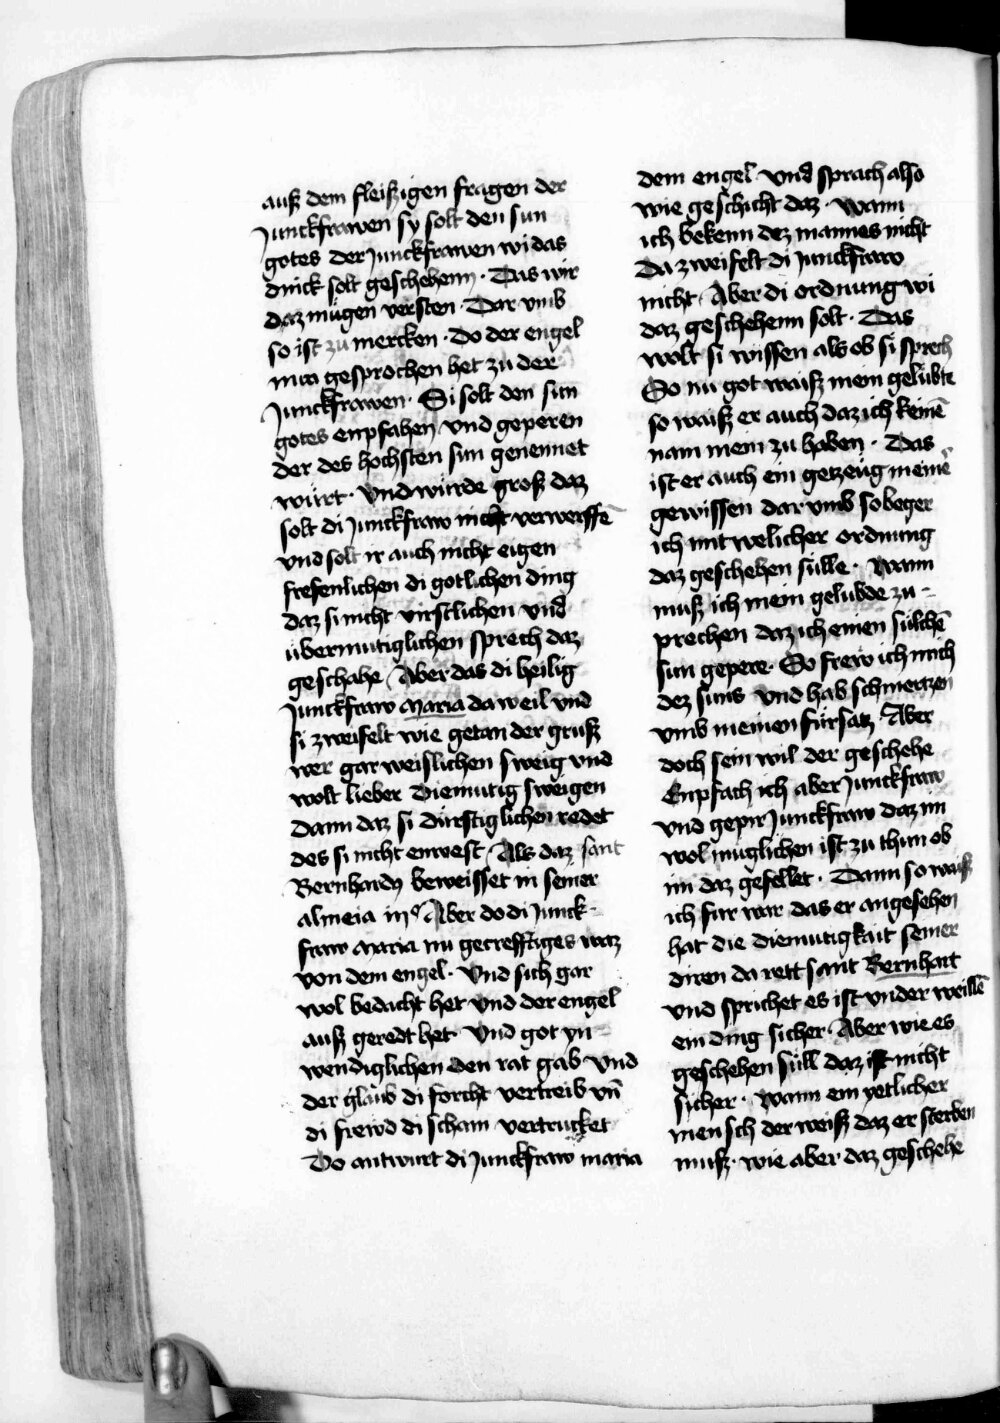 auß dem fleißigen fragen der
Junckfrawen sy solt den sun
gotes der Junckfrawen wi das
dinck solt geschehenn · Das wir
daz mügen versten · Dar vmb
so ist zu mercken · Do der engel
nun gesprochen het zu der
Junckfrawen · Si solt den sun
gotes enpfahen vnd geperen
der des hochsten sun genennet
würt · Vnd würde groß daz
solt di Junckfraw nicht verwerffē
vnd solt ir auch nicht eigen
frefenlichen di gotlichen ding
daz si nicht virstlichen vnd
übermutiglichen sprech daz
geschahe / Aber das di heilig
Junckfraw Maria da weil vnd
si zweifelt wie getan der gruß
wer gar weislichen sweig vnd
wolt lieber Diemutig sweigen
Dann daz si dürstiglichen redet
des si nicht enwest / Als daz sant
Bernhardꝰ beweisset in seiner
Aber do di Junck-
fraw maria nu gecrefftiges waz
von dem engel · Vnd sich gar
wol bedacht het vnd der engel
auß geredt het · Vnd got yn-
wendiglichen den rat gab vnd
der glaub di forcht vertreib vn̄
di frewd di scham vertrucket
Do antwurt di Junckfraw maria
dem engel · vnd sprach also
wie geschicht daz · Wann
ich bekenn dez mannes nicht
Da zweifelt di Junckfraw
nicht / Aber di ordnung wi
daz geschehenn solt · Das
wolt si wissen als ob si sprech
So nu got waiß mein gelübte
so waiß er auch daz ich keinē
nam mein zu haben · Das
ist er auch ein gezeüg meinē
gewissen dar vmb so beger
ich mit welicher ordnung
daz geschehen sülle · Wann
muß ich mein gelubde zu-
prechen daz ich einen sülchē
sun gepere · So frew ich mich
dez suns vnd hab schmertzen
vmb meinen fürsatz · Aber
doch sein wil der geschehe
Enpfach ich aber Junckfraw
vnd gepir Junckfraw daz im
wol müglichen ist zu thun ob
im daz gefellet · Dann so waiß
ich für war das er angesehen
hat die diemutigkait seiner
diren da rett sant Bernhart
vnd sprichet es ist vnder weillē
ein ding sicher · Aber wie es
geschehen süll daz ist nicht
sicher · Wann ein yetlicher
mensch der weiß daz er sterben
muß · wie aber daz geschehe